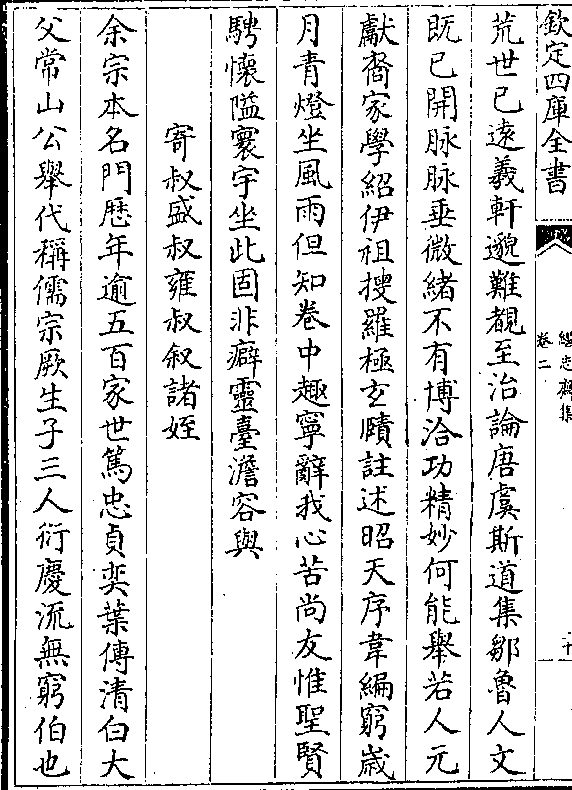 欽定四庫全書
卷二
荒世已遠羲軒邈難覩至治論唐虞斯道集鄒魯人文
既已開脉脉垂微緒不有博洽功精妙何能舉若人元
獻裔家學紹伊祖搜羅極玄賾註述昭天序韋編窮歳
月青燈坐風雨但知卷中趣寧辭我心苦尚友惟聖賢
騁懷隘寰宇坐此固非癖靈臺澹容與
寄叔盛叔雍叔叙諸姪
余宗本名門歴年逾五百家世篤忠貞奕葉傳清白大
父常山公舉代稱儒宗厥生子三人衍慶流無窮伯也